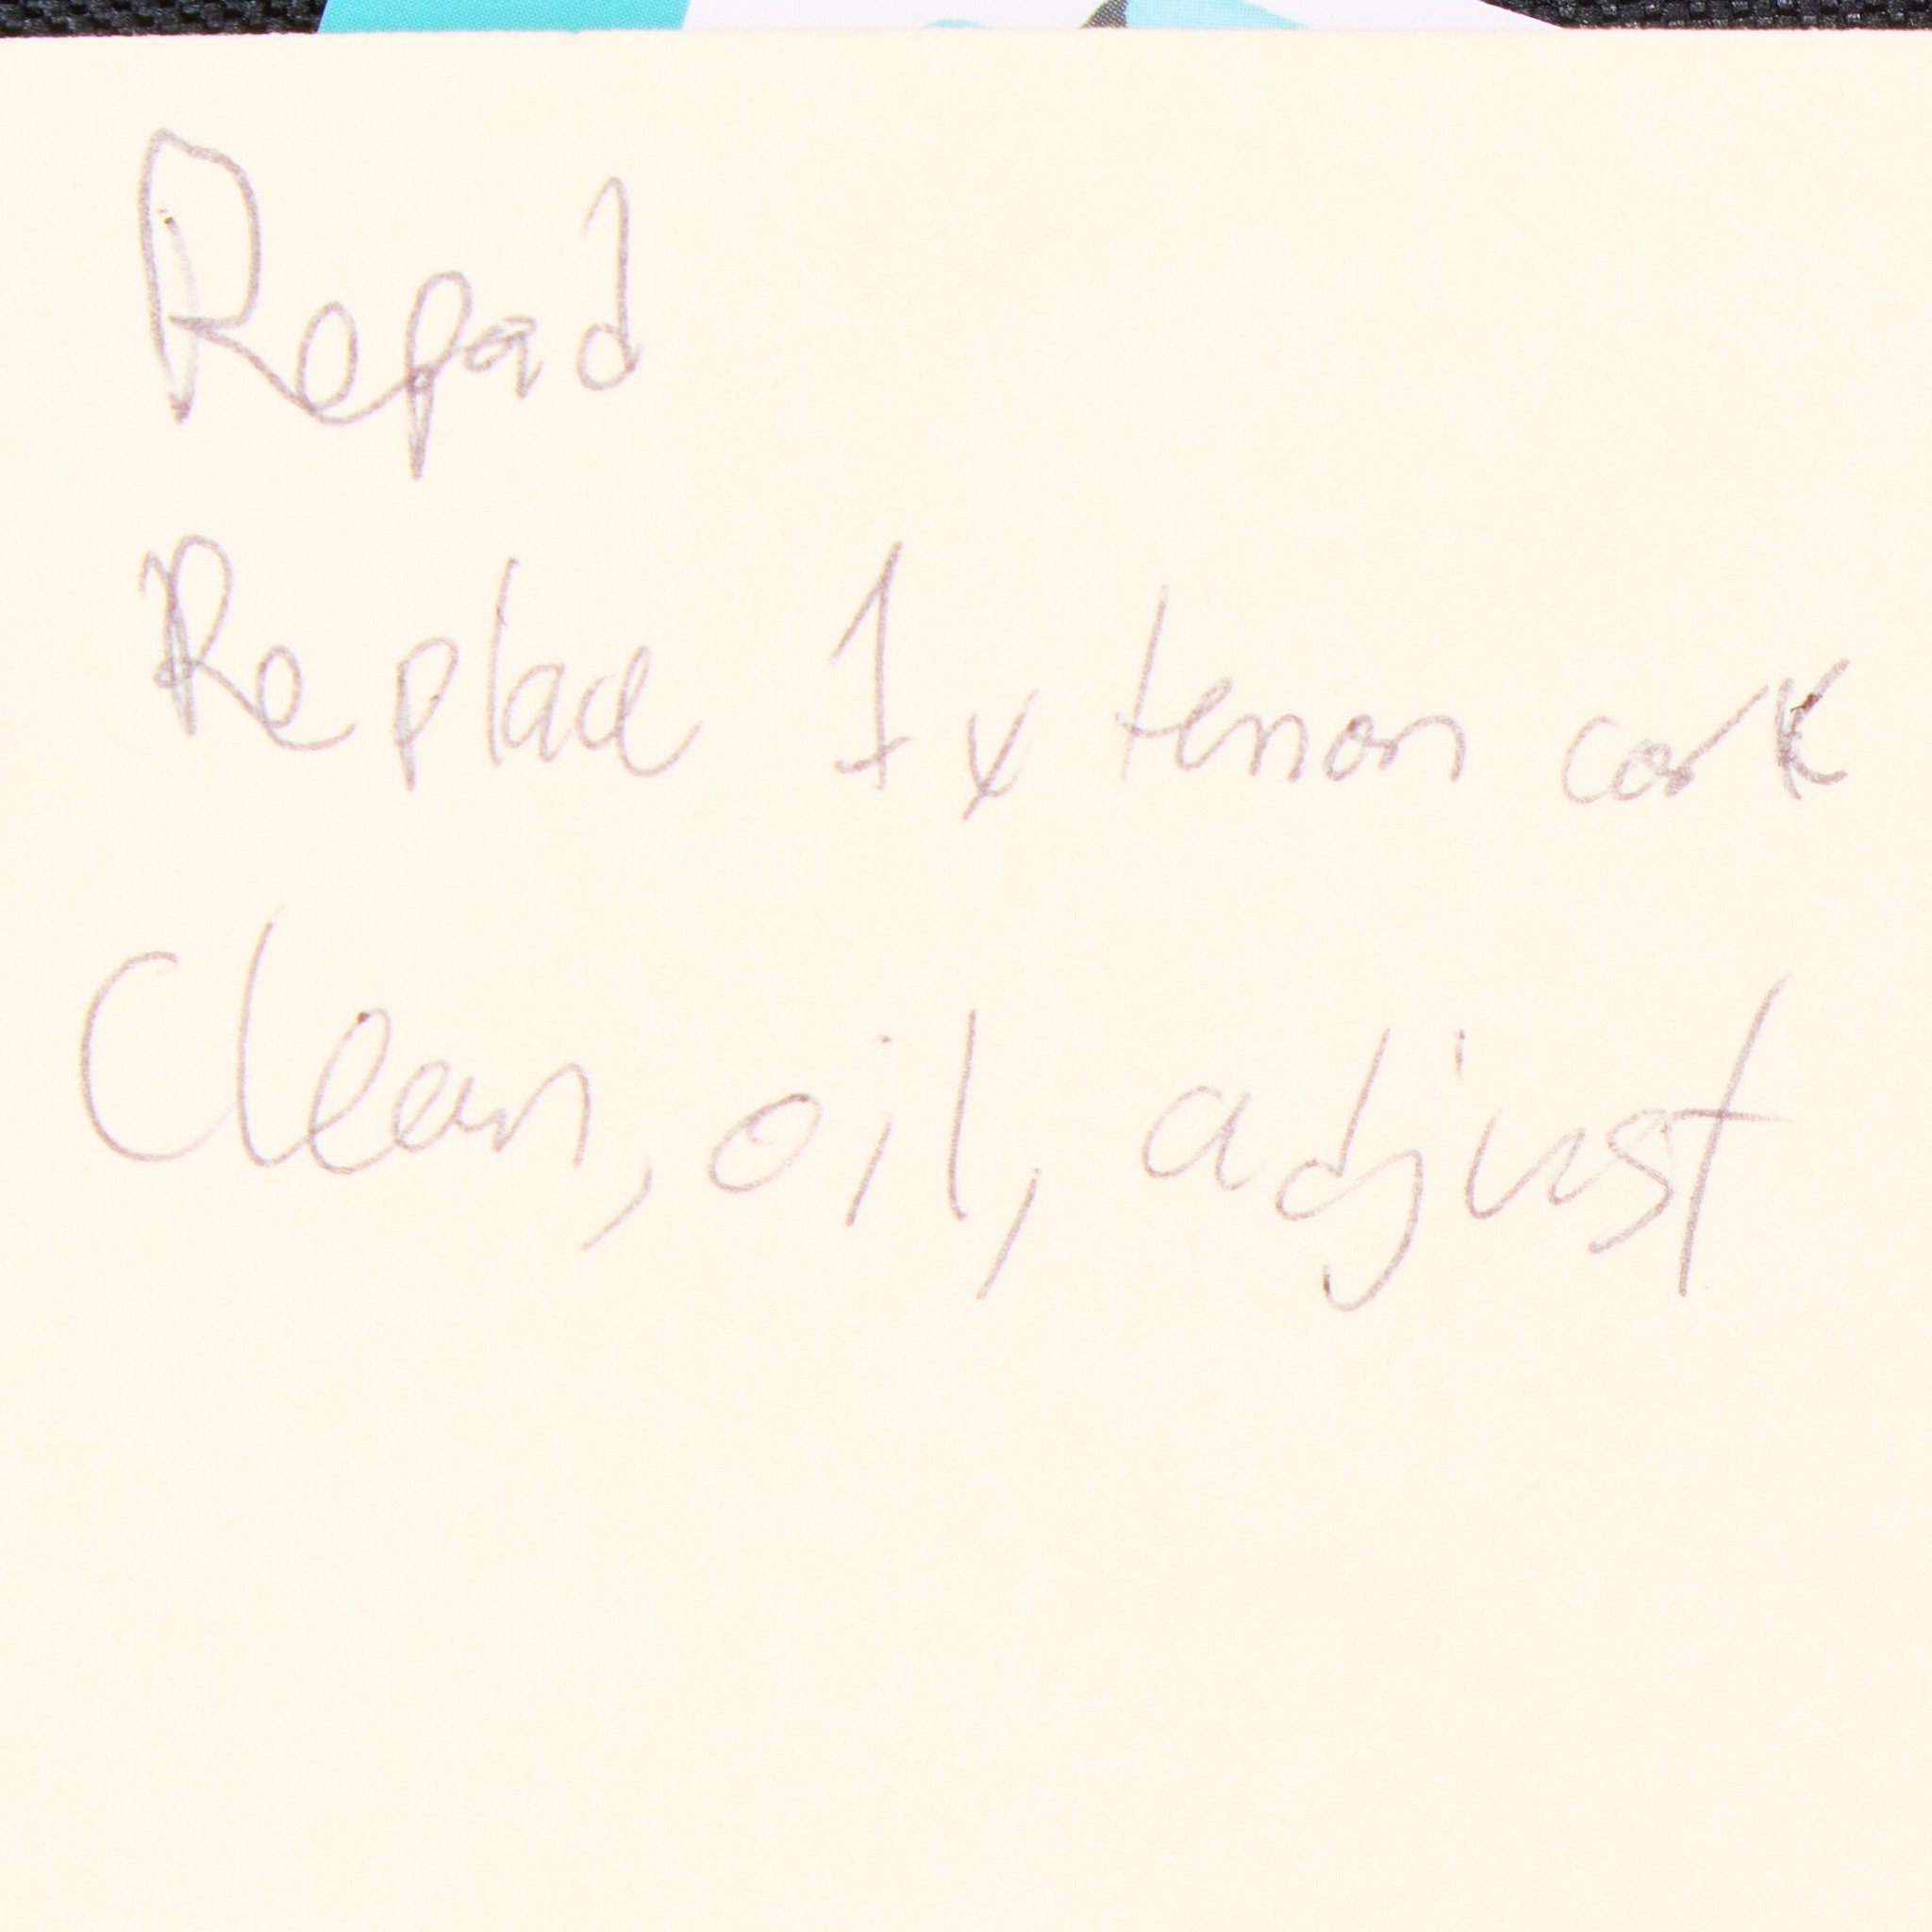 Repad
Replace 1x tenon cork
Clean, oil, adjust